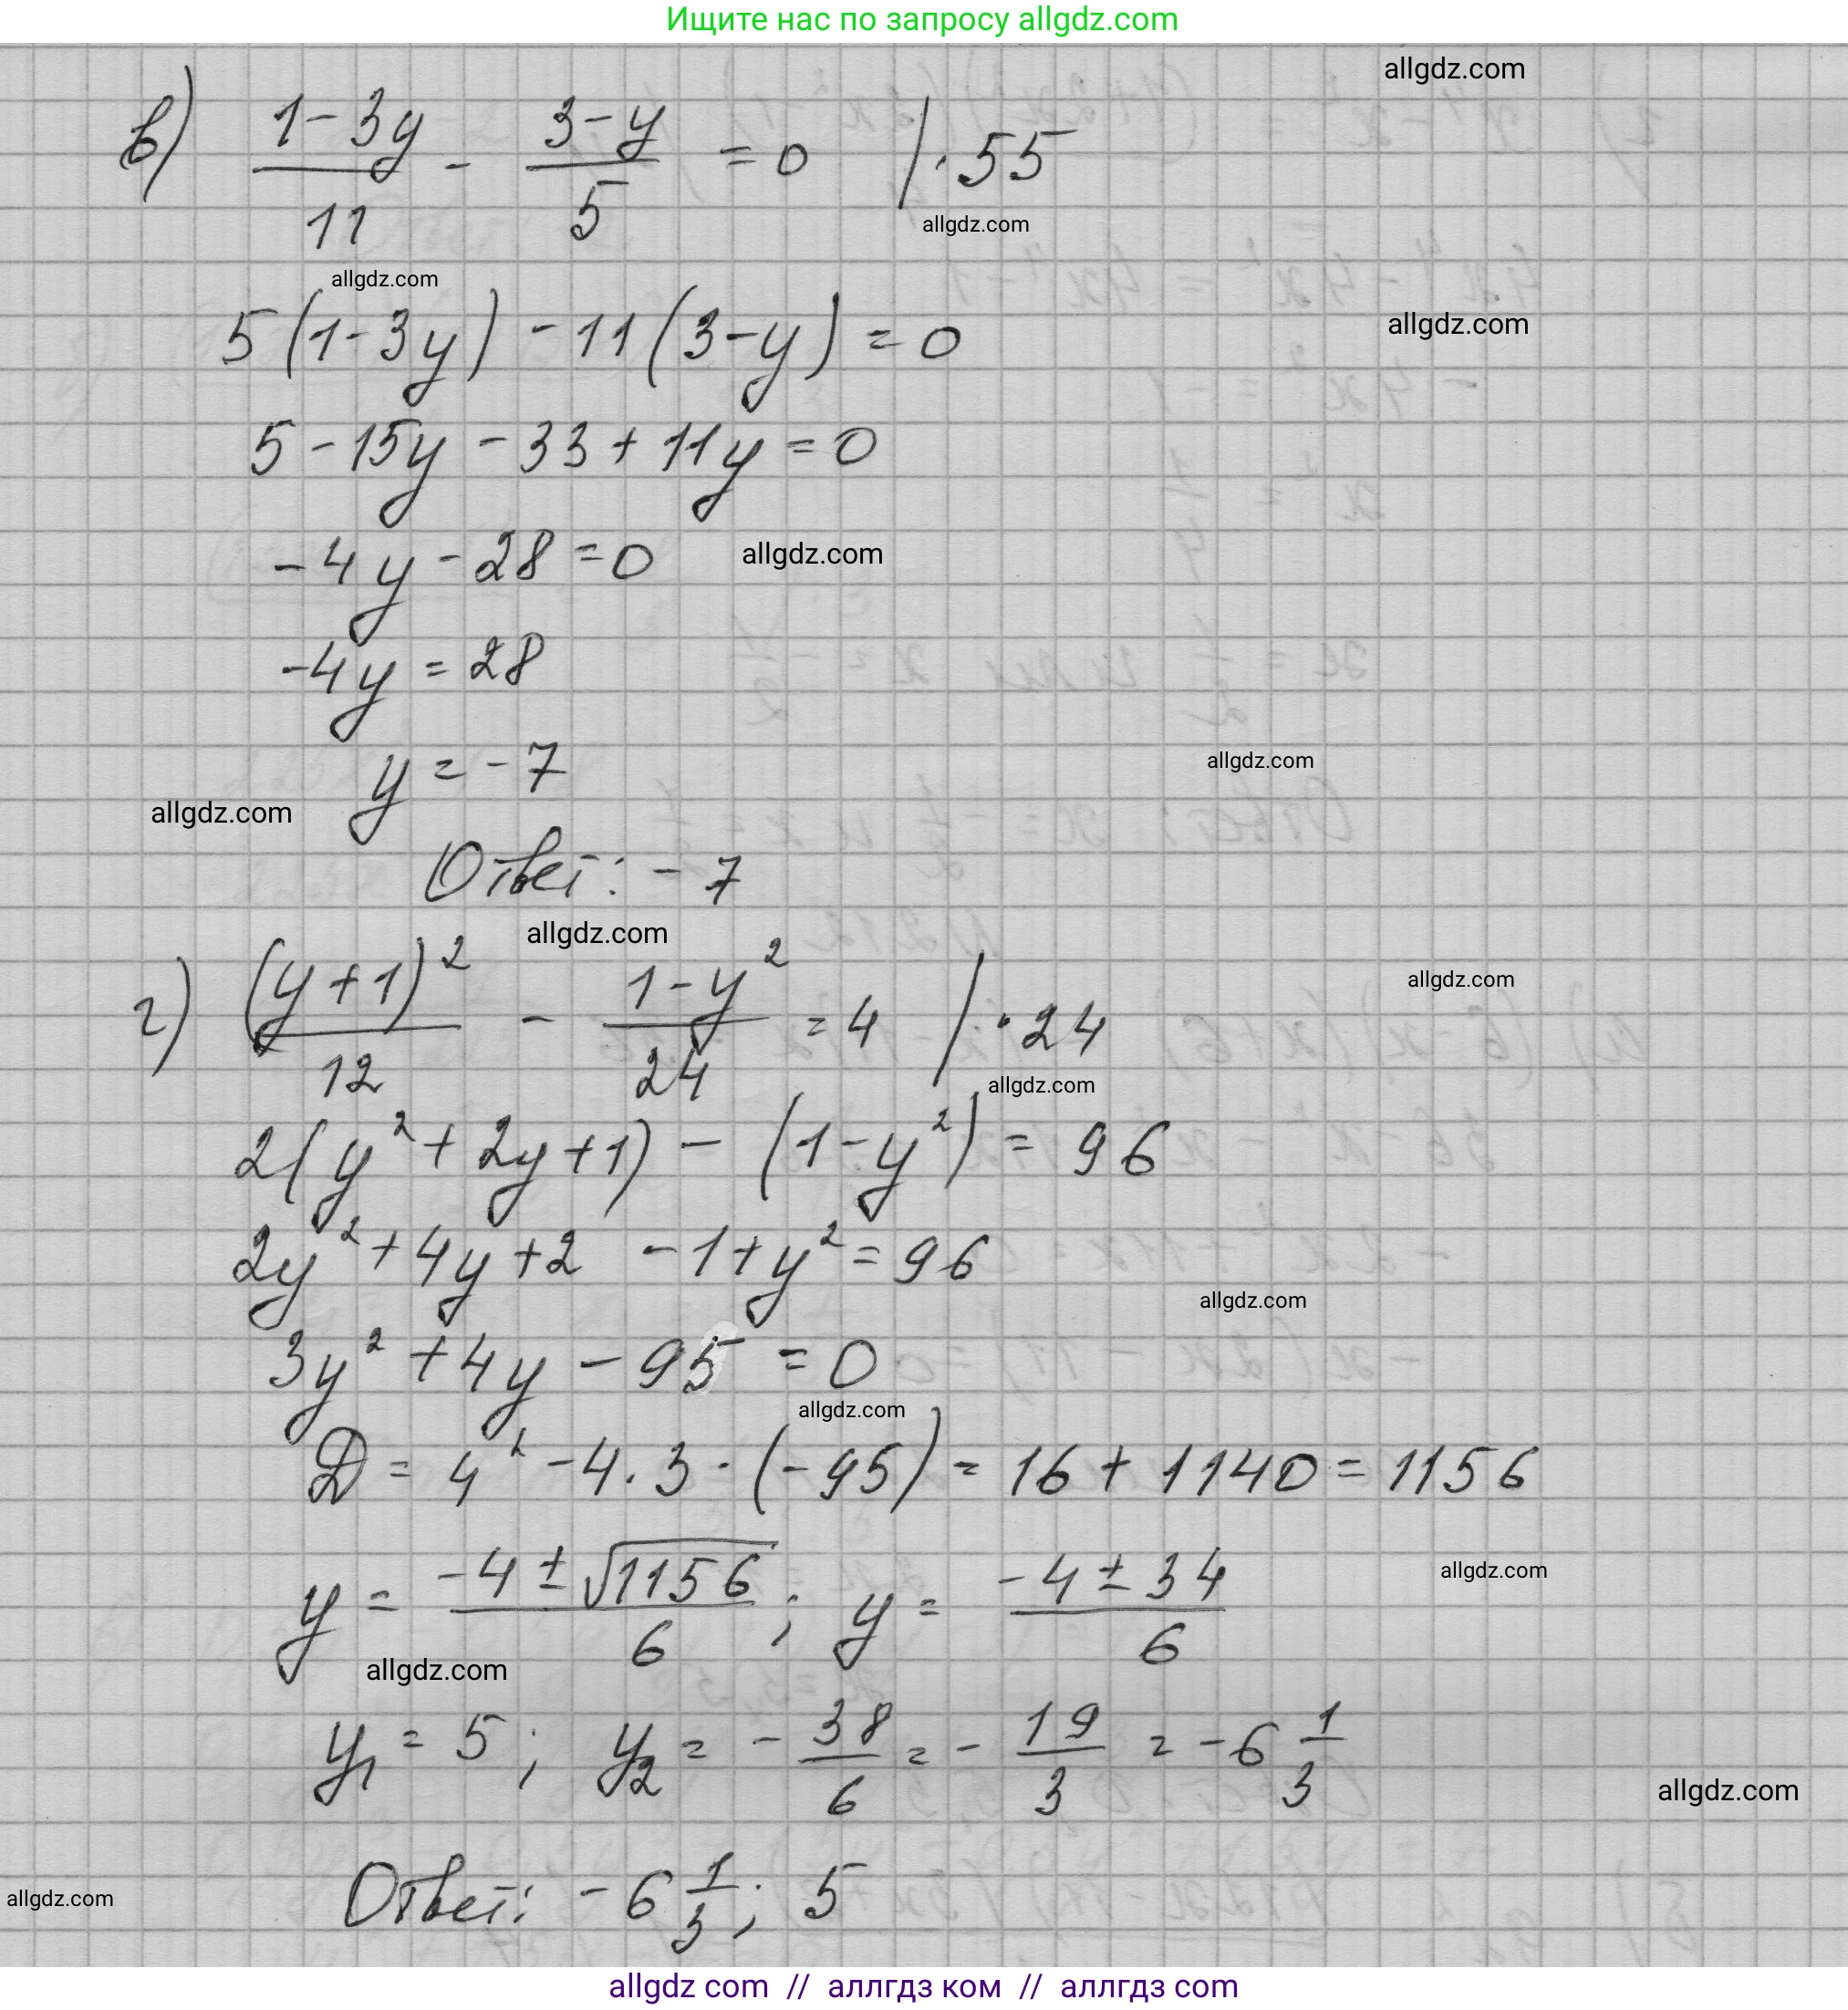 Ищите нас по запросу allgdz.com
allgdz.com
в) (1-3y)/11 - (3-y)/5 = 0 | · 55
allgdz.com
allgdz.com
5(1-3y) - 11(3-y) = 0
allgdz.com
5 - 15y - 33 + 11y = 0
-4y - 28 = 0
allgdz.com
-4y = 28
y = -7
allgdz.com
allgdz.com
Ответ: -7
allgdz.com
г) (y+1)²/12 - (1-y²)/24 = 4 | · 24
allgdz.com
allgdz.com
2(y² + 2y + 1) - (1-y²) = 96
2y² + 4y + 2 - 1 + y² = 96
allgdz.com
3y² + 4y - 95 = 0
allgdz.com
D = 4² - 4 · 3 · (-95) = 16 + 1140 = 1156
y = (-4 ± √1156)/6 ; y = (-4 ± 34)/6
allgdz.com
allgdz.com
y₁ = 5 ; y₂ = -38/6 = -19/3 = -6 1/3
allgdz.com
Ответ: -6 1/3 ; 5
allgdz.com
allgdz com // аллгдз ком // аллгдз com